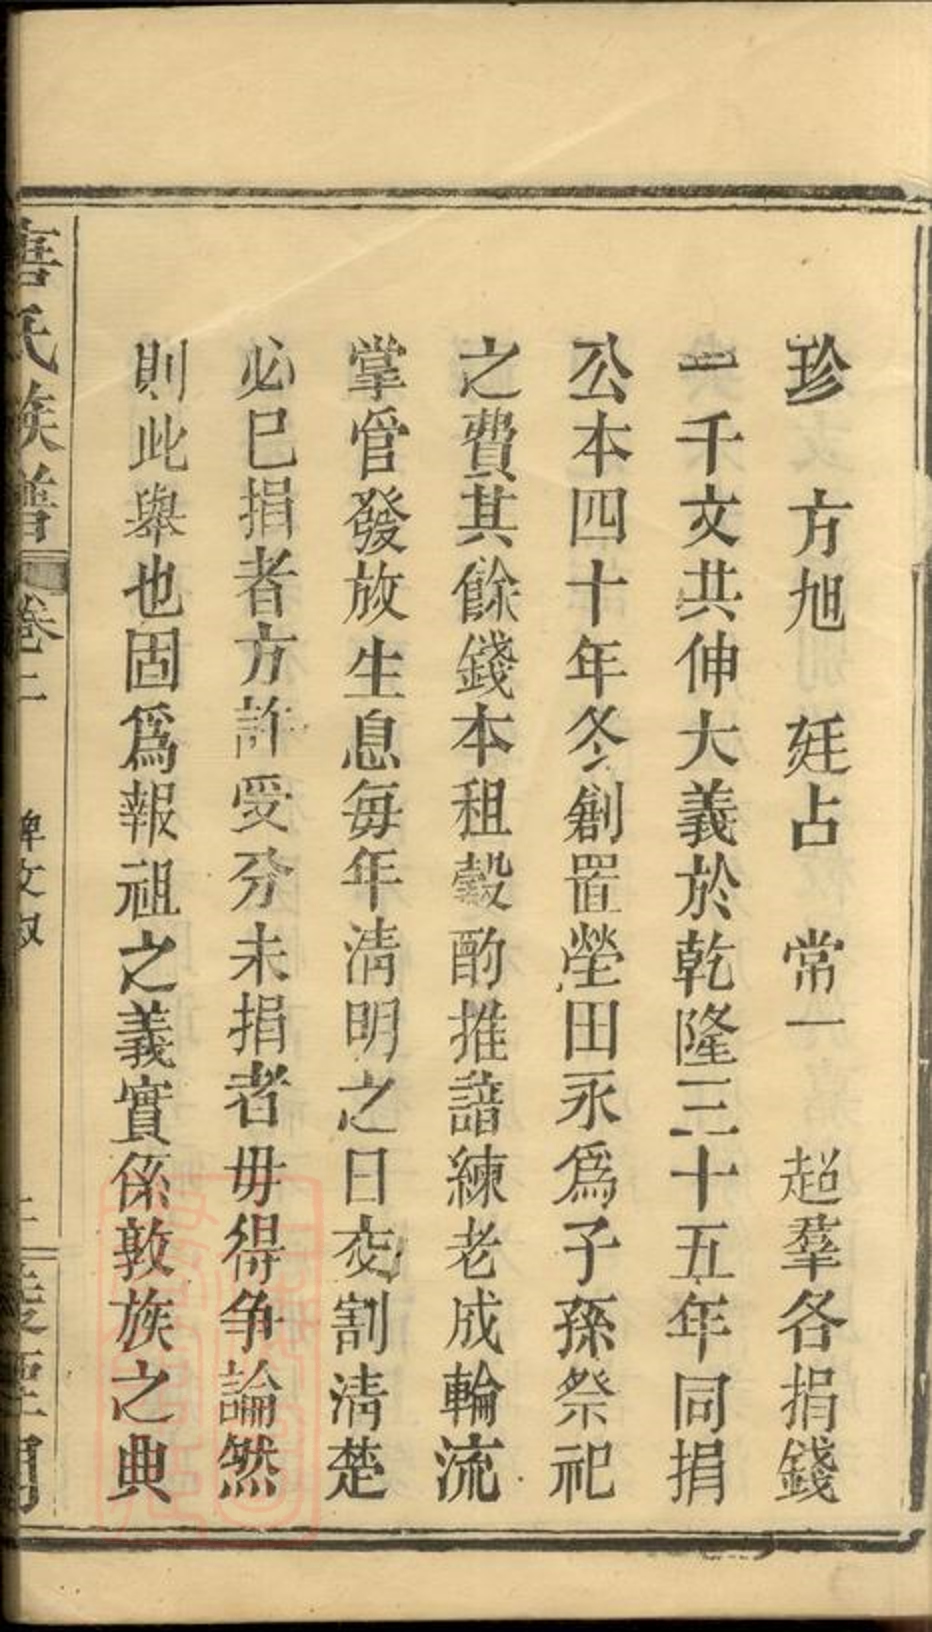 珍　方旭　廷占　常一　超羣各捐錢
一千文共伸大義於乾隆三十五年同捐
公本四十年冬創置塋田永爲子孫祭祀
之費其餘錢本租穀酌推諳練老成輪流
掌管發放生息每年清明之日交割清楚
必已捐者方許受分未捐者毋得争論然
則此舉也固爲報祖之義實係敦族之典
唐氏族譜 卷二